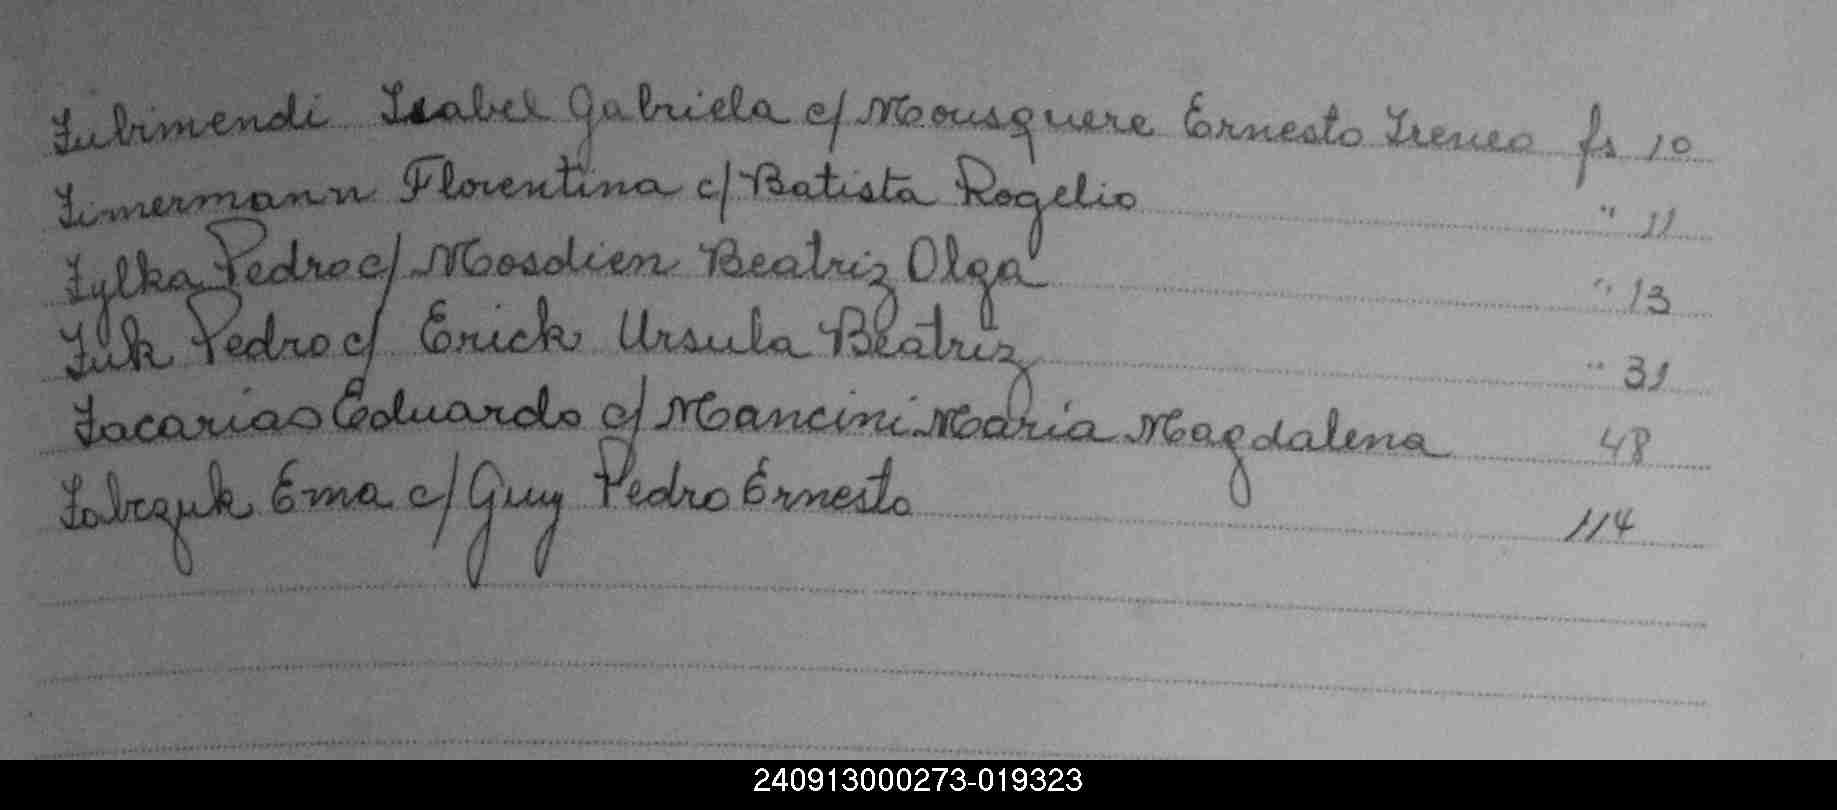 Zubimendi Isabel Gabriela c/ Mousquere Ernesto Ireneo fs 10
Zimermann Florentina c/ Batista Rogelio " 11
Zylka Pedro c/ Mosdien Beatriz Olga " 13
Zuk Pedro c/ Erick Ursula Beatriz " 31
Zacarias Eduardo c/ Mancini Maria Magdalena 48
Zabczuk Ema c/ Guy Pedro Ernesto 114
240913000273-019323